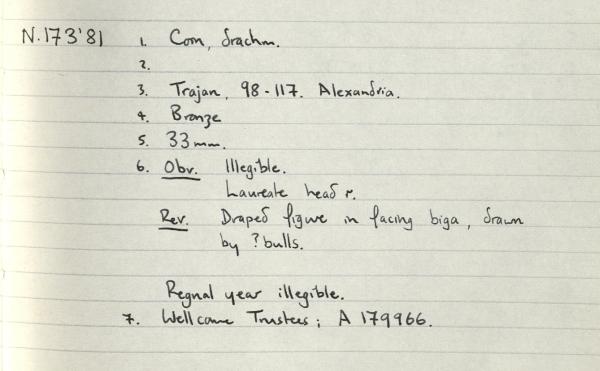 N.173'81 1. Coin, drachm.
2.
3. Trajan, 98-117. Alexandria.
4. Bronze
5. 33mm.
6. Obv. Illegible.
Laureate head r.
Rev. Draped figure in facing biga, drawn
by ?bulls.
Regnal year illegible.
7. Wellcome Trustees; A 179966.